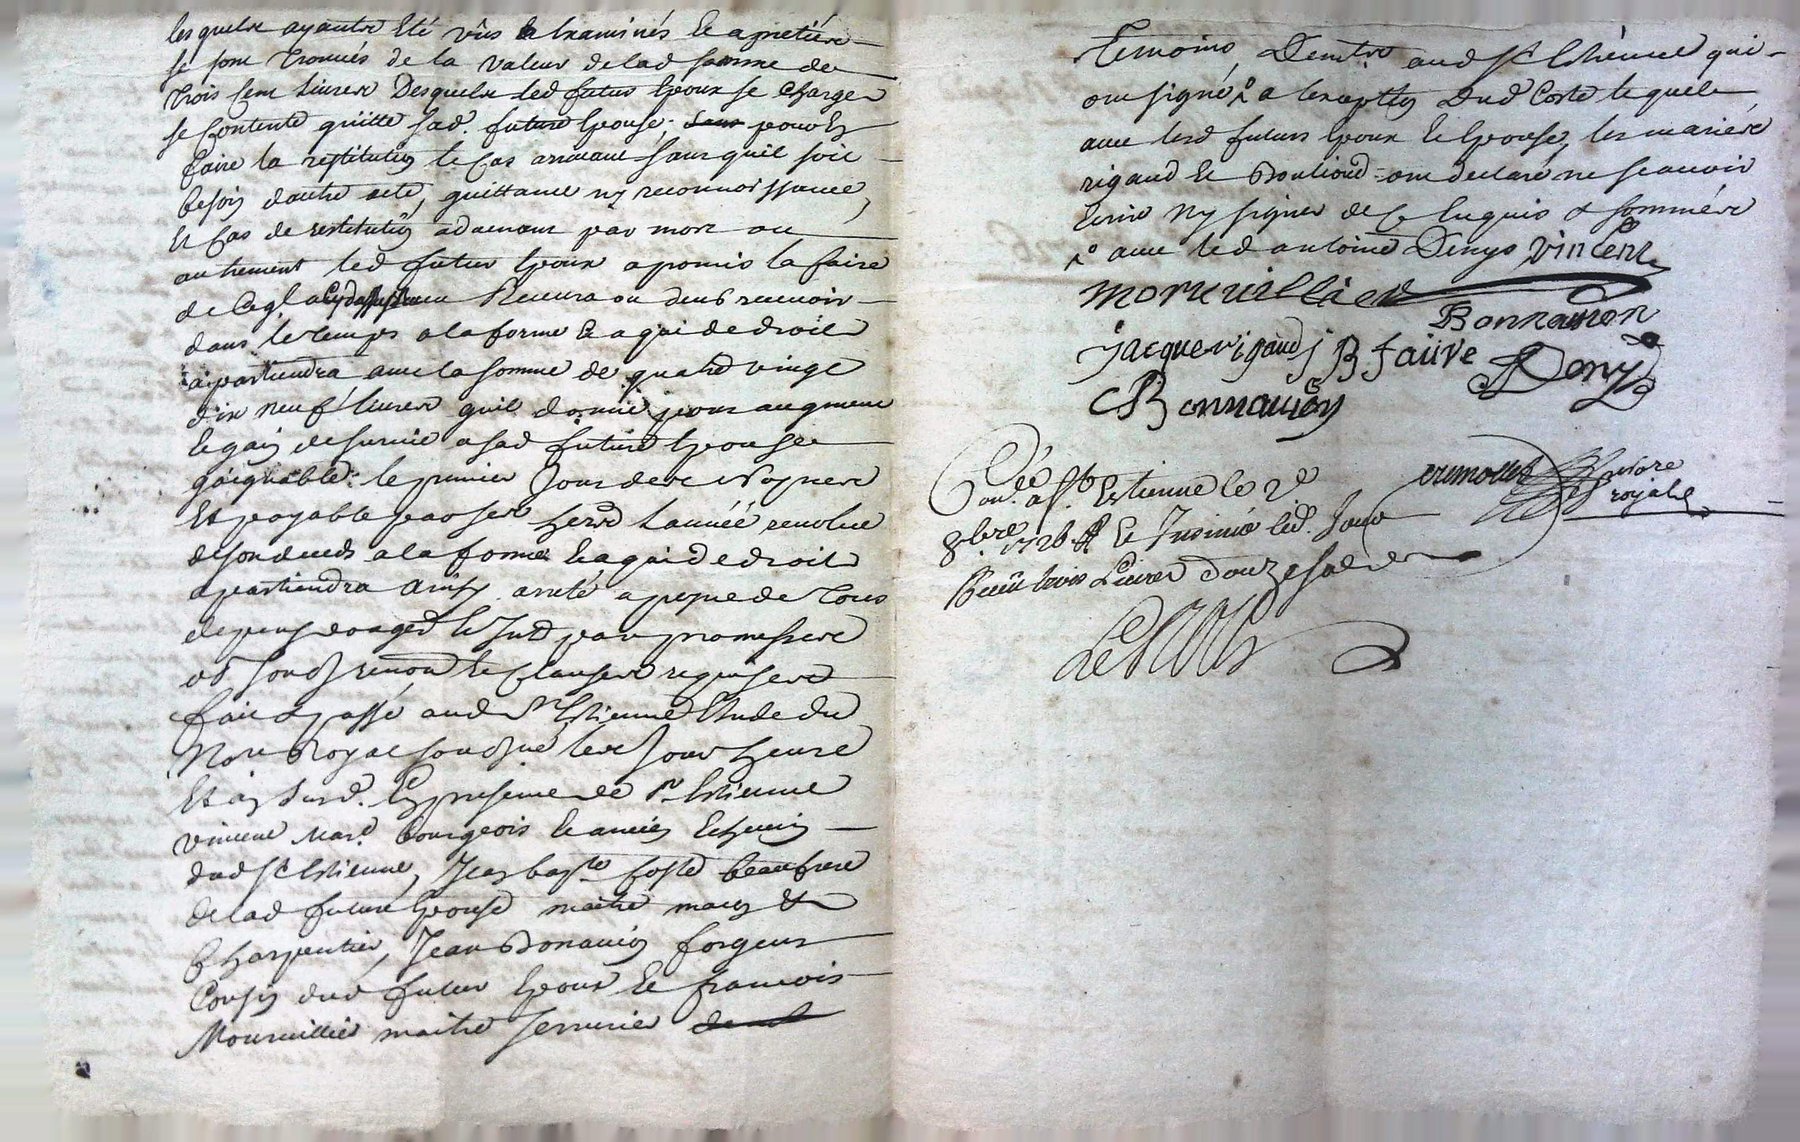 lesquels ayants eté vûs & examinés & apretiés
se sont trouvés de la valeur de lad somme de
trois cent livres desquels led futur Epoux se charge
se contente quitte sad. future Epouse; pour En
faire la restitution le cas arrivant sans quil soit
besoin dautre acte, quittance ny reconnoissance,
Et cas de restitution advenant par mort ou
autrement led futur Epoux a promis la faire
de ce ql a Recevra ou deub recevoir
dans le temps a la forme & a qui de droit
apartiendra avec la somme de quatre vingt
dix neuf livres quil donne pour augment
le gain de survie a sad future Epouse
gaignable le premier Jour de ses Nopces
Et payable par ses hers lannée revolue
de son deceds a la forme & a qui de droit
apartiendra ainsy arreté a peyne de tous
depens domages Et Intd par promesses
obd soubd renond & clauses requises
fait & passé aud St Estienne Etude du
Nore Royal soubsné les Jour heure
Et an susd. En presence de sr Estienne
vincent mard bourgeois & ancien Echevin
dud St Estienne, Jean bapte Coste beaufrere
de lad future Epouse maitre maçon &
Charpentier, Jean Bonavion forgeur
Cousin dud futur Epoux & francois
Morevillier maitre serrurier
Temoins, Demts aud St Estienne qui
ont signé a lexception dud Coste lequel
avec lesd futurs Epoux & Epouse, les mariés
rigaud & ont declaré ne scavoir
Ecrire ny signer de ce Enquis & sommés
avec led antoine Denys vincent
morevillier
Bonnavion
Jacque rigaud J B faure Deny
Bonnavion
Con. a St Estienne le 2e
8bre 1726 & Insinué led. Jour
Receu trois Livres douze sols
notere
royal